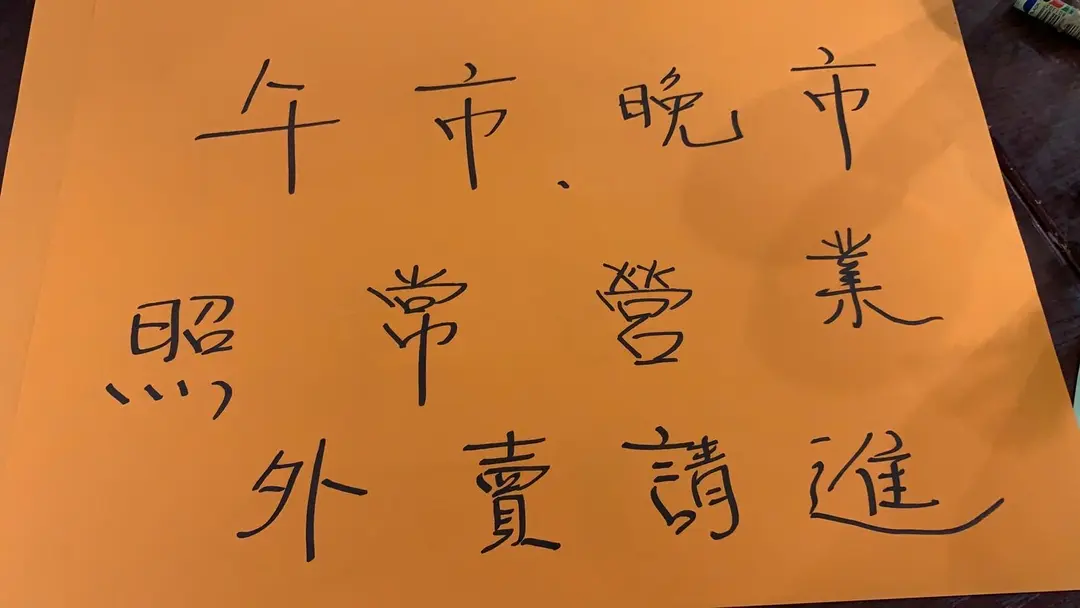 午市、晚市
照常營業
外賣請進